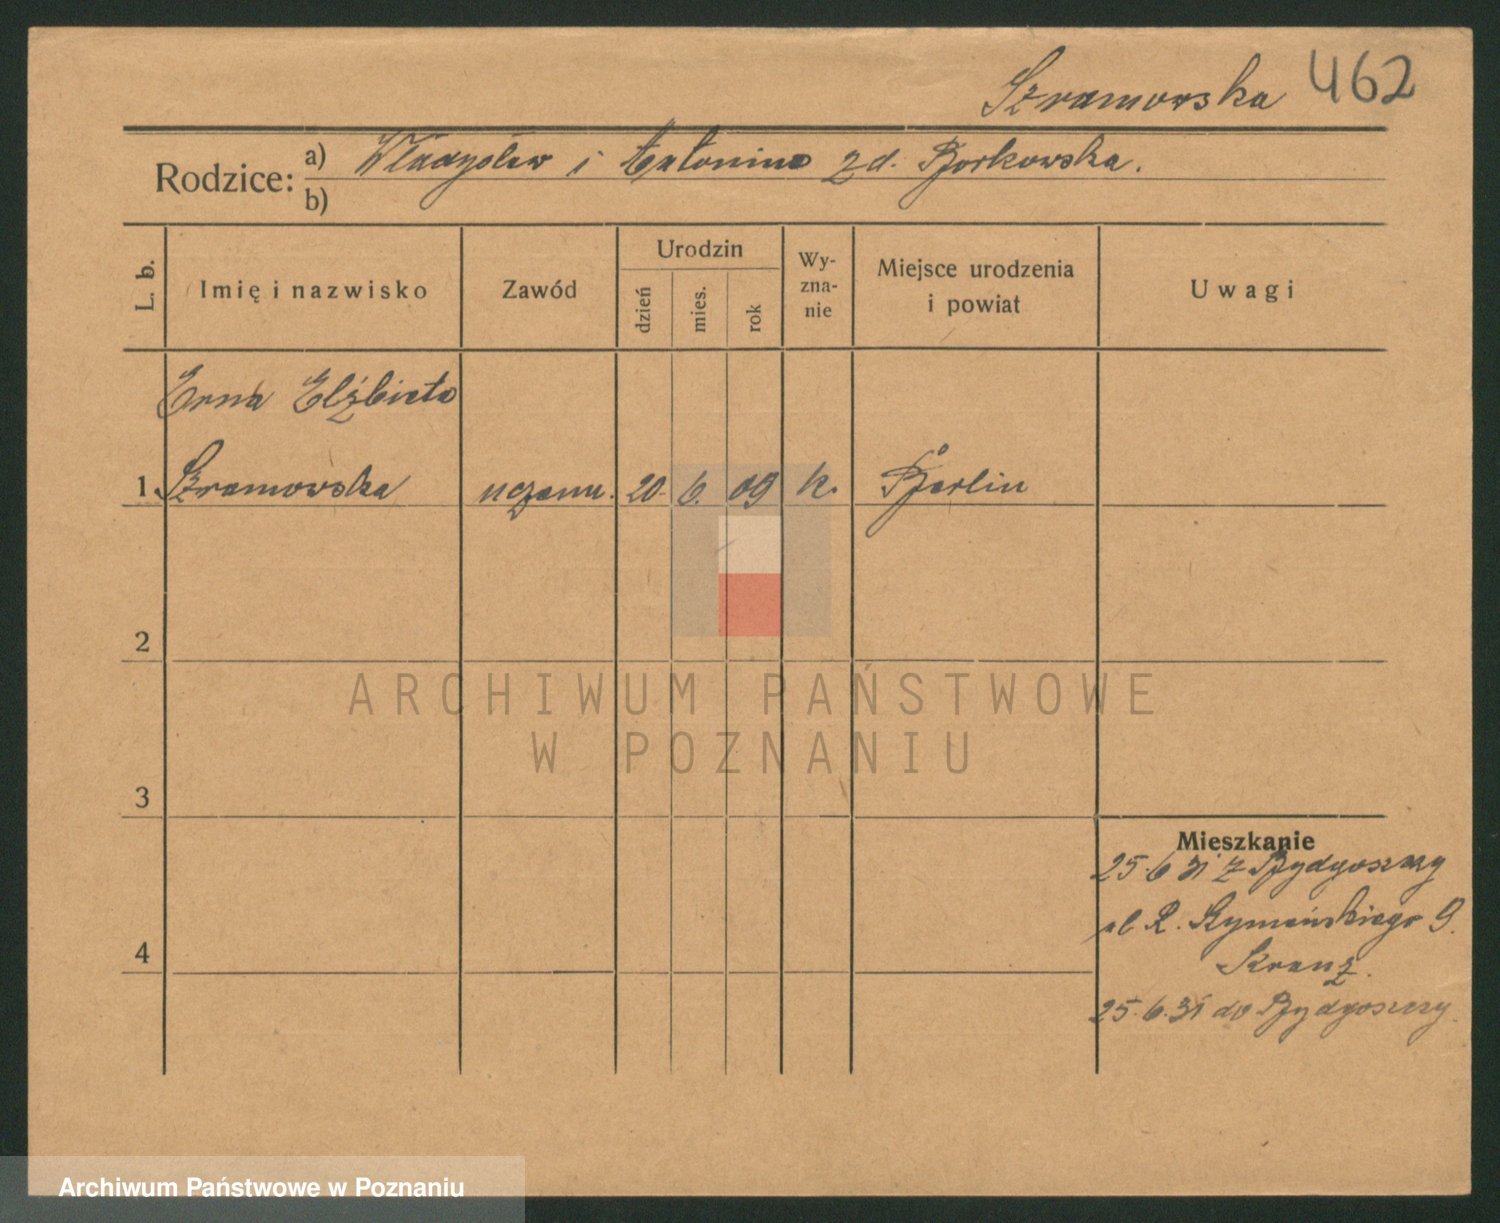 Szramowska 462
Rodzice: a) Władysław i Antonina zd. Borkowska.
b)
L. b.
Imię i nazwisko
Zawód
Urodzin
dzień
mies.
rok
Wy-
zna-
nie
Miejsce urodzenia
i powiat
Uwagi
Erna Elżbieta
1 Szramowska uczenn. 20. 6. 09 k. Berlin
2
ARCHIWUM PAŃSTWOWE
W POZNANIU
3
Mieszkanie
25.6 31 z Bydgoszczy
ul. R. Szymańskiego 9.
4
25.6.31 do Bydgoszczy.
Archiwum Państwowe w Poznaniu